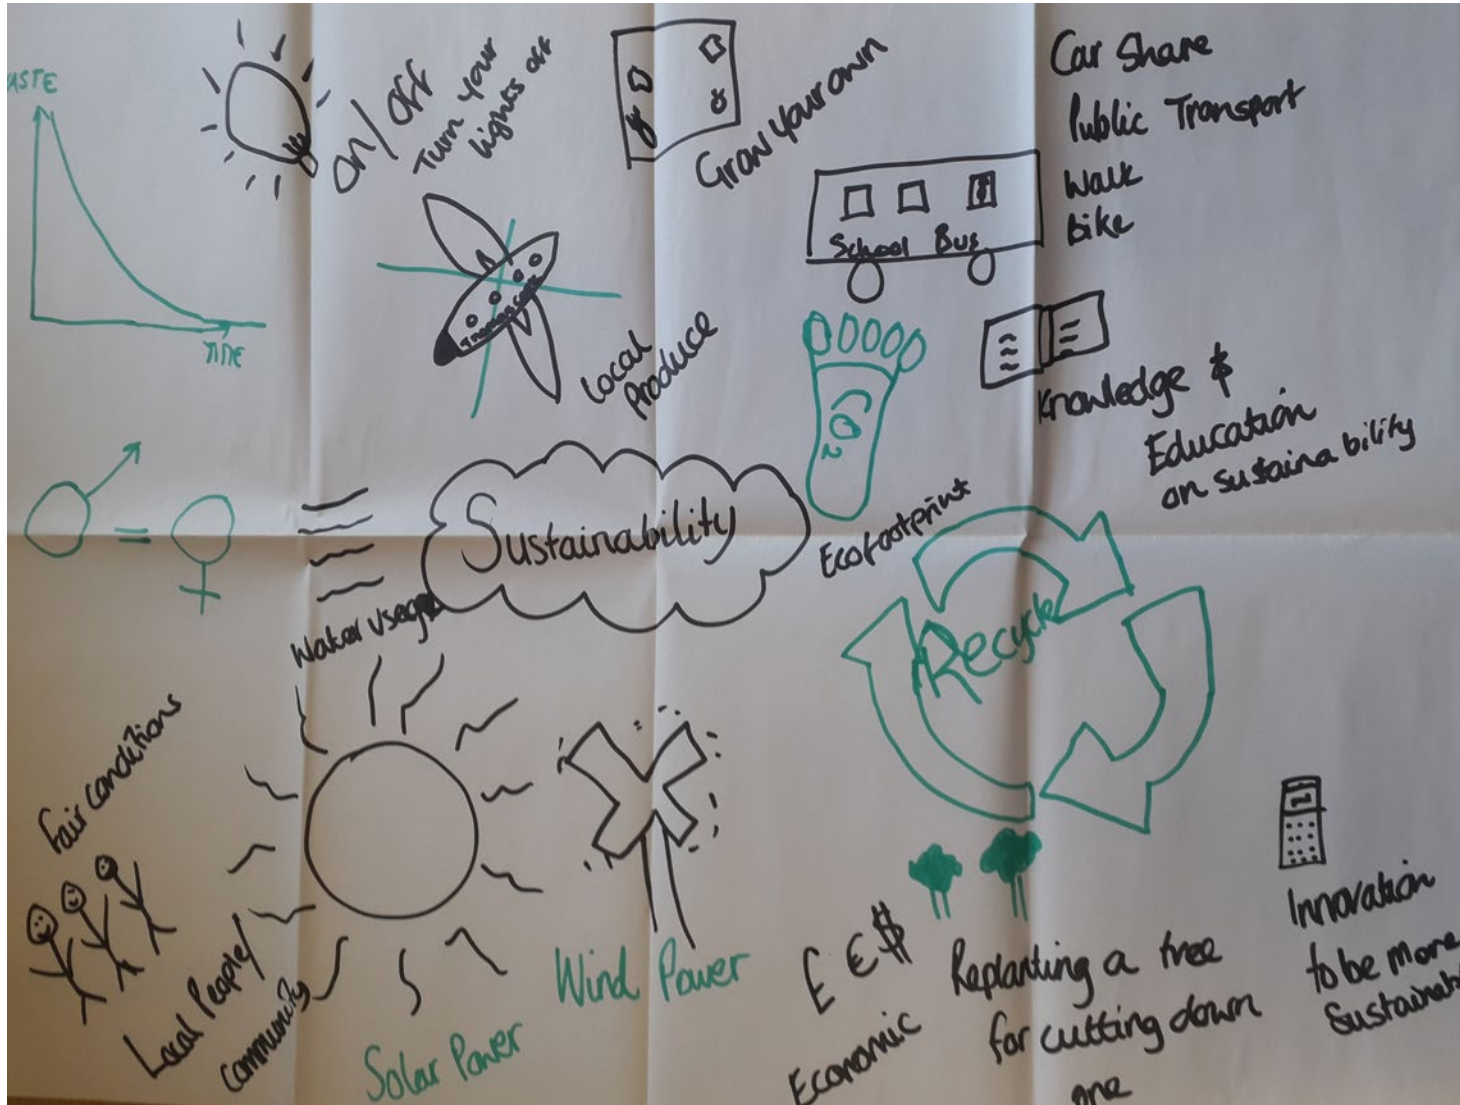 ASTE
TIME
On/Off
Turn your
lights off
Grow your own
Car Share
Public Transport
Walk
bike
School Bus
Local
Produce
CO2
Knowledge &
Education
on sustainability
Sustainability
Ecofootprint
Water Usage
Recycle
Fair conditions
Local People/
Community
Solar Power
Wind Power
£ € $
Economic
Replanting a tree
for cutting down
one
Innovation
to be more
Sustainab